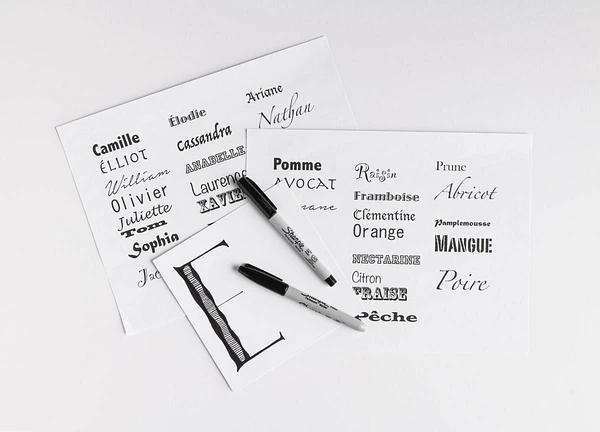 Camille
ÉLLIOT
William
Olivier
Juliette
Tom
Sophia
Élodie
Cassandra
ANABELLE
Laurence
XAVIER
Ariane
Nathan
Pomme
AVOCAT
Raisin
Framboise
Clémentine
Orange
NECTARINE
Citron
FRAISE
Pêche
Prune
Abricot
Pamplemousse
MANGUE
Poire
E
Sharpie